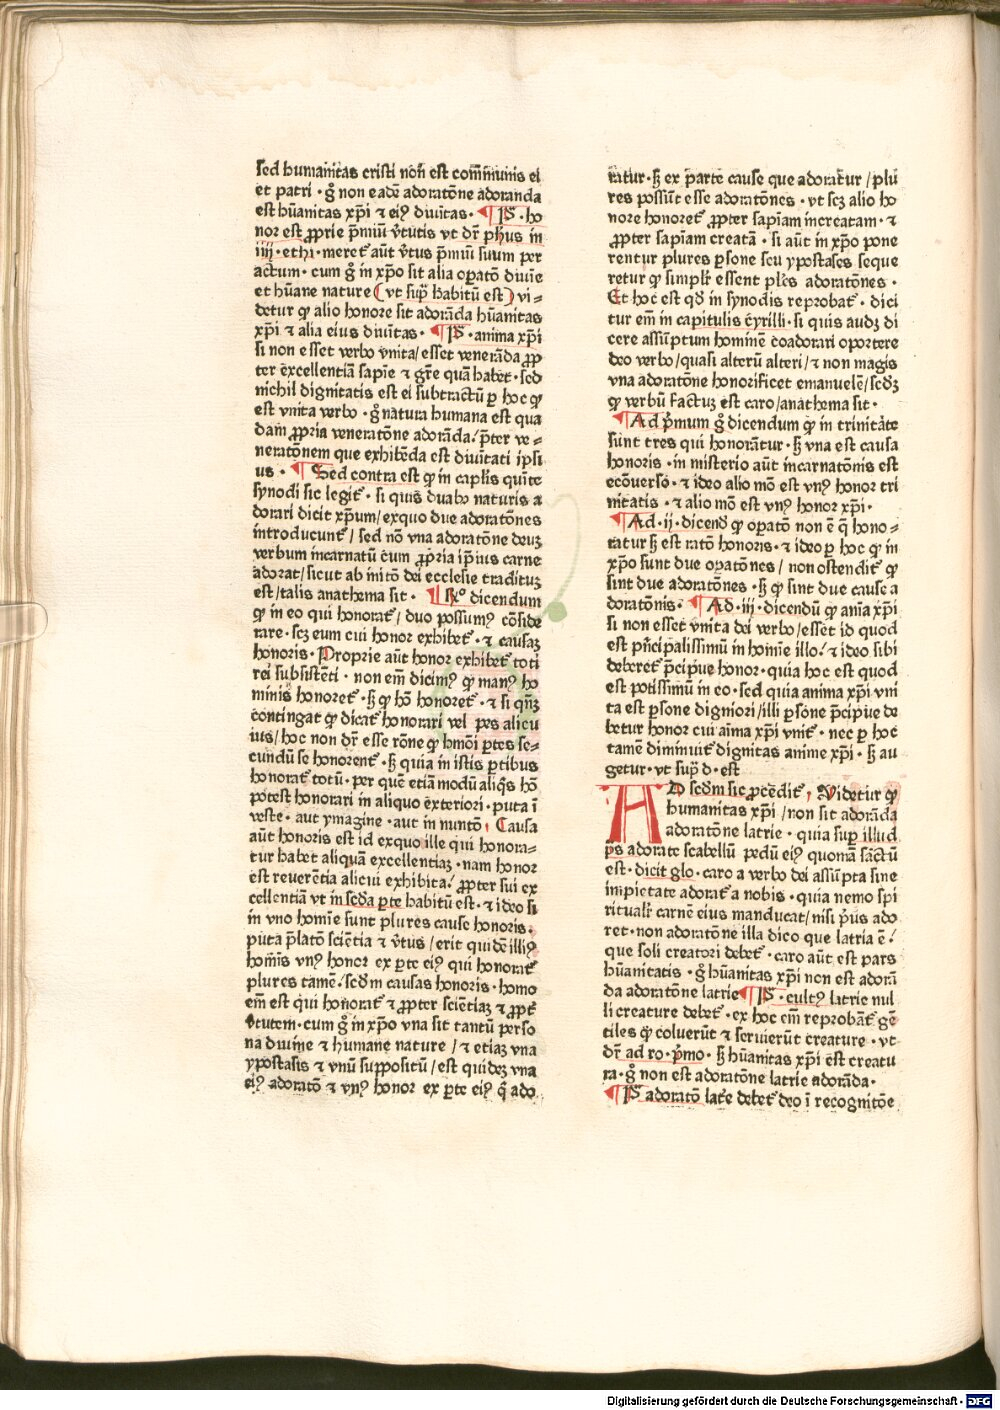 sed humanitas cristi non̄ est com̄munis ei
et patri · gͦ non eadē adoratōne adoranda
est hūanitas xp̄i ⁊ eiꝰ diuītas · ¶ P̄ · ho
nor est ꝓprie p̄miū v̄tutis vt dr̄ ph̄us in
iiij · ethi · meret᷑ aūt v̄tus p̄miū suum per
actum · cum gͦ in xp̄o sit alia oꝑatō diuīe
et hūane nature (vt sup̄ habitū est) vi-
detur ꝙ alio honore sit adorāda hūanitas
xp̄i ⁊ alia eius diuītas · ¶ P̄ · anima xp̄i
si non esset verbo vnita / esset venerāda ꝓp
ter excellentiā sapīe ⁊ gr̄e quā habet · sed
nichil dignitatis est ei subtractū ꝑ hoc ꝙ
est vnita verbo · gͦ natura humana est qua
dam ꝓpria veneratōne adorāda / p̄ter ve-
neratōnem que exhibēda est diuītati ipsi
us · ¶ Sed contra est ꝙ in caplīs quīte
synodi sic legit᷑ · si quis duabꝰ naturis a
dorari dicit xp̄um / exquo due adoratōnes
introducunt᷑ / sed nō vna adoratōne deuꝫ
verbum incarnatū cum ꝓpria ip̄ius carne
adorat / sicut ab initō dei ecclesie tradituꝫ
est / talis anathema sit · ¶ Rͦ dicendum
ꝙ in eo qui honorat᷑ / duo possumꝰ cōside
rare · scꝫ eum cui honor exhibet᷑ · ⁊ causaꝫ
honoris · Proprie aūt honor exhibet᷑ toti
rei subsistēti · non em̄ dicimꝰ ꝙ manꝰ ho
minis honoret᷑ · sꝫ ꝙ hō honoret᷑ · ⁊ si qn̄ꝫ
contingat ꝙ dicat᷑ honorari vel pes alicu
ius / hoc non dr̄ esse rōne ꝙ hmōi ꝑtes se-
cundū se honorent᷑ · sꝫ quia in istis ꝑtibus
honorat᷑ totū · per quē etiā modū aliqs hō
potest honorari in aliquo exteriori · puta ī
veste · aut ymagine · aut in nuntō · Causa
aūt honoris est id exquo ille qui honora-
tur habet aliquā excellentiaꝫ · nam honor
est reuerētia alicui exhibita / ꝓpter sui ex
cellentiā vt in scd̄a ꝑte habitū est · ⁊ ideo si
in vno homīe sunt plures cause honoris ·
puta p̄latō sciētia ⁊ v̄tus / erit quidē illiꝰ
homīs vnꝰ honor ex ꝑte eiꝰ qui honorat᷑
plures tamē / scd̄m causas honoris · homo
em̄ est qui honorat᷑ ⁊ ꝓpter sciētiaꝫ ⁊ ꝓpt᷑
v̄tutem · cum gͦ in xp̄o vna sit tantū perso
na diuīne ⁊ humane nature / ⁊ etiaꝫ vna
ypostasis ⁊ vnū suppositū / est quideꝫ vna
eiꝰ adoratō ⁊ vnꝰ honor ex ꝑte eiꝰ q̄ ado
ratur · sꝫ ex ꝑarte cause que adoratur / plu
res possūt esse adoratōnes · vt scꝫ alio ho
nore honoret᷑ ꝓpter sapīam increatam · ⁊
ꝓpter sapīam creatā · si aūt in xp̄o pone
rentur plures ꝑsone seu ypostases seque
retur ꝙ simplr̄ essent pl̄es adoratōnes ·
Et hoc est qd̄ in synodis reprobat᷑ · dici
tur em̄ in capitulis cyrilli · si quis audꝫ di
cere assūptum hominē coadorari oportere
deo verbo / quasi alterū alteri / ⁊ non magis
vna adoratōne honorificet emanuelē / scd̄ꝫ
ꝙ verbū factuꝫ est caro / anathema sit ·
¶ Ad p̄mum gͦ dicendum ꝙ in trinitate
sunt tres qui honorātur · sꝫ vna est causa
honoris · in misterio aūt incarnatōnis est
ecōuerso · ⁊ ideo alio mō est vnꝰ honor tri
nitatis · ⁊ alio mō est vnꝰ honor xp̄i ·
¶ Ad · ij · dicendꝰ ꝙ oꝑatō non ē q̄ hono-
ratur sꝫ est ratō honoris · ⁊ ideo ꝑ hoc ꝙ in
xp̄o sunt due oꝑatōnes / non ostendit᷑ ꝙ
sint due adoratōnes · sꝫ ꝙ sint due cause a
doratōnis · ¶ Ad · iij · dicendū ꝙ aīa xp̄i
si non esset vnita dei verbo / esset id quod
est prīcipalissimū in homīe illo / ⁊ ideo sibi
deberet᷑ p̄cipue honor · quia hoc est quod
est potissimū in eo · sed quia anima xp̄i vni
ta est ꝑsone digniori / illi ꝑsone p̄cipue de
betur honor cui aīma xp̄i vnit᷑ · nec ꝑ hoc
tamē diminuit᷑ dignitas anime xp̄i · sꝫ au
getur · vt sup̄ d · est
AD scd̄m sic ꝓcedit᷑ · Videtur ꝙ
humanitas xp̄i / non sit adorāda
adoratōne latrie · quia suꝑ illud
p̄s adorate scabellū pedū eiꝰ quoniā sāctū
est · dicit glo · caro a verbo dei assūpta sine
impietate adorat᷑ a nobis · quia nemo spi
ritualr̄ carnē eius manducat / nisi pͥus ado
ret · non adoratōne illa dico que latria ē /
que soli creatori debet᷑ · caro aūt est pars
hūanitatis · gͦ hūanitas xp̄i non est adorā
da adoratōne latrie ¶ P̄ · cultꝰ latrie nul
li creature debet᷑ · ex hoc em̄ reprobāt᷑ gē
tiles ꝙ coluerūt ⁊ seruierūt creature · vt
dr̄ ad ro · p̄mo · sꝫ hūanitas xp̄i est creatu
ra · gͦ non est adoratōne latrie adorāda ·
¶ P̄ adoratō lat᷑e debet᷑ deo ī recognitōe
Digitalisierung gefördert durch die Deutsche Forschungsgemeinschaft · DFG